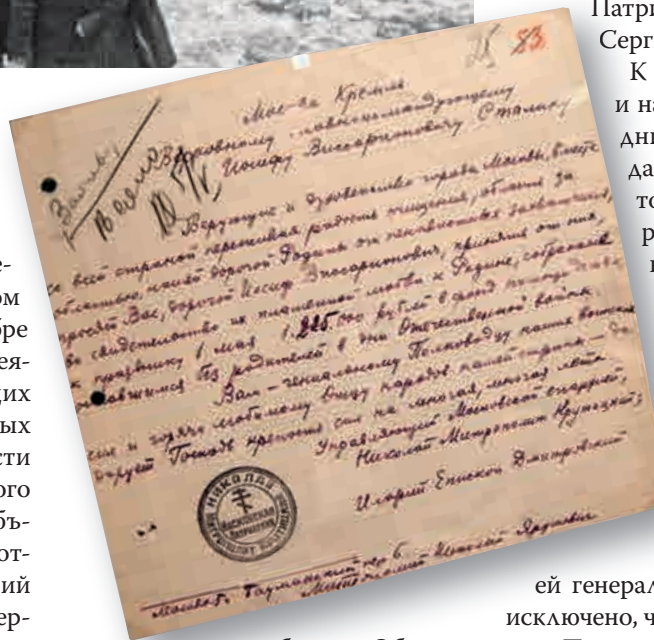 Патри
Серг
К
и на
дни
да
то
р
28 83
Мос-ва Кремль.
Верховному Главнокомандующему
Иосифу Виссарионовичу Сталину
Верующие и духовенство города Москвы, вместе
со всей страной переживая радость очищения, область за
областью, нашей дорогой Родины от ненавистных захватчиков,
просят Вас, дорогой Иосиф Виссарионович, принять от них,
во свидетельство их пламенной любви к Родине, собранные
к празднику 1 мая 1.225.000 рублей в фонд помощи детям,
оставшимся без родителей в дни Отечественной войны.
Вам – гениальному Полководцу наших воинских
сил и горячо любимому Отцу народов нашей страны – да
дарует Господь крепость сил на многая, многая лета.
Управляющий Московской епархией,
Николай Митрополит Крутицкий;
Иларий Епископ Дмитровский
НИКОЛАЙ
МОСКОВСКАЯ ПАТРИАРХИЯ
МИТРОПОЛИТ
Москва, Бауманский пер 6.
Митрополит Николай Ярушевич
е-
ом
бре
ея-
щих
ых
сти
ого
бъ-
от-
ний
ер-
ей генерал
исключено, ч